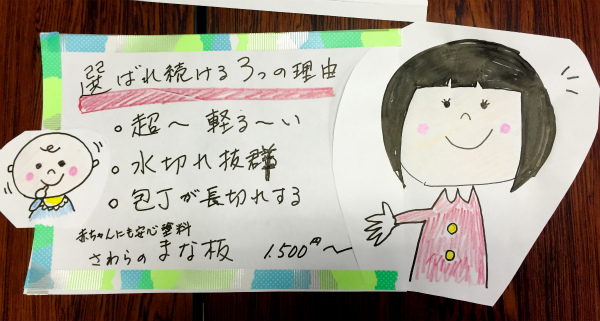 選ばれ続ける3つの理由
○超～軽る～い
○水切れ抜群
○包丁が長切れする
赤ちゃんにも安心塗料
さわらのまな板 1.500円～